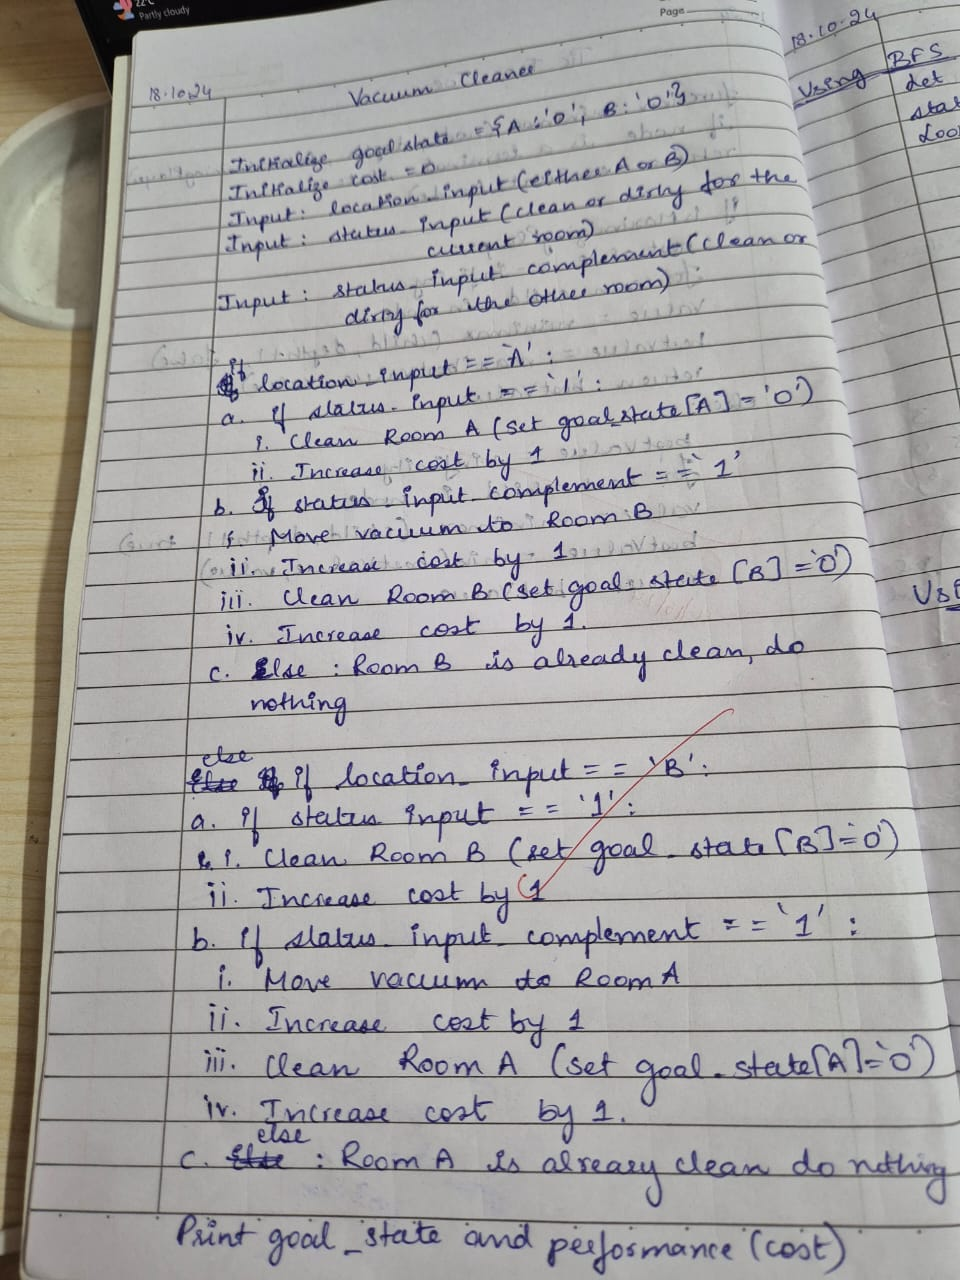 22°C
Partly cloudy
Page
18.10.24
Vacuum Cleaner
Initialize goal state = {A : '0', B : '0'}
Initialize cost = 0
Input : location_input (either A or B)
Input : status_input (clean or dirty for the
current room)
Input : status_input_complement (clean or
dirty for the other room)
if location_input == 'A' :
a. if status_input == '1' :
i. Clean Room A (set goal_state[A] = '0')
ii. Increase cost by 1
b. If status_input_complement == '1'
i. Move vacuum to Room B
ii. Increase cost by 1
iii. Clean Room B (set goal state [B] = '0')
iv. Increase cost by 1.
c. Else : Room B is already clean, do
nothing
else if location_input == 'B' :
a. if status input == '1' :
i. Clean Room B (set goal_state [B] = '0')
ii. Increase cost by 1
b. if status_input_complement == '1' :
i. Move vacuum to Room A
ii. Increase cost by 1
iii. Clean Room A (set goal_state[A] = '0')
iv. Increase cost by 1.
c. else : Room A is already clean do nothing
Print goal_state and performance (cost)
18.10.24
Using BFS